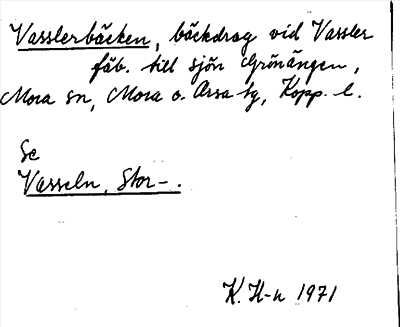 Vasslerbäcken, bäckdrag vid Vassler
fäb. till sjön Grönängen,
Mora sn, Mora o. Orsa tg, Kopp. l.
Se
Vasseln, Stor-.
K. H-n 1971